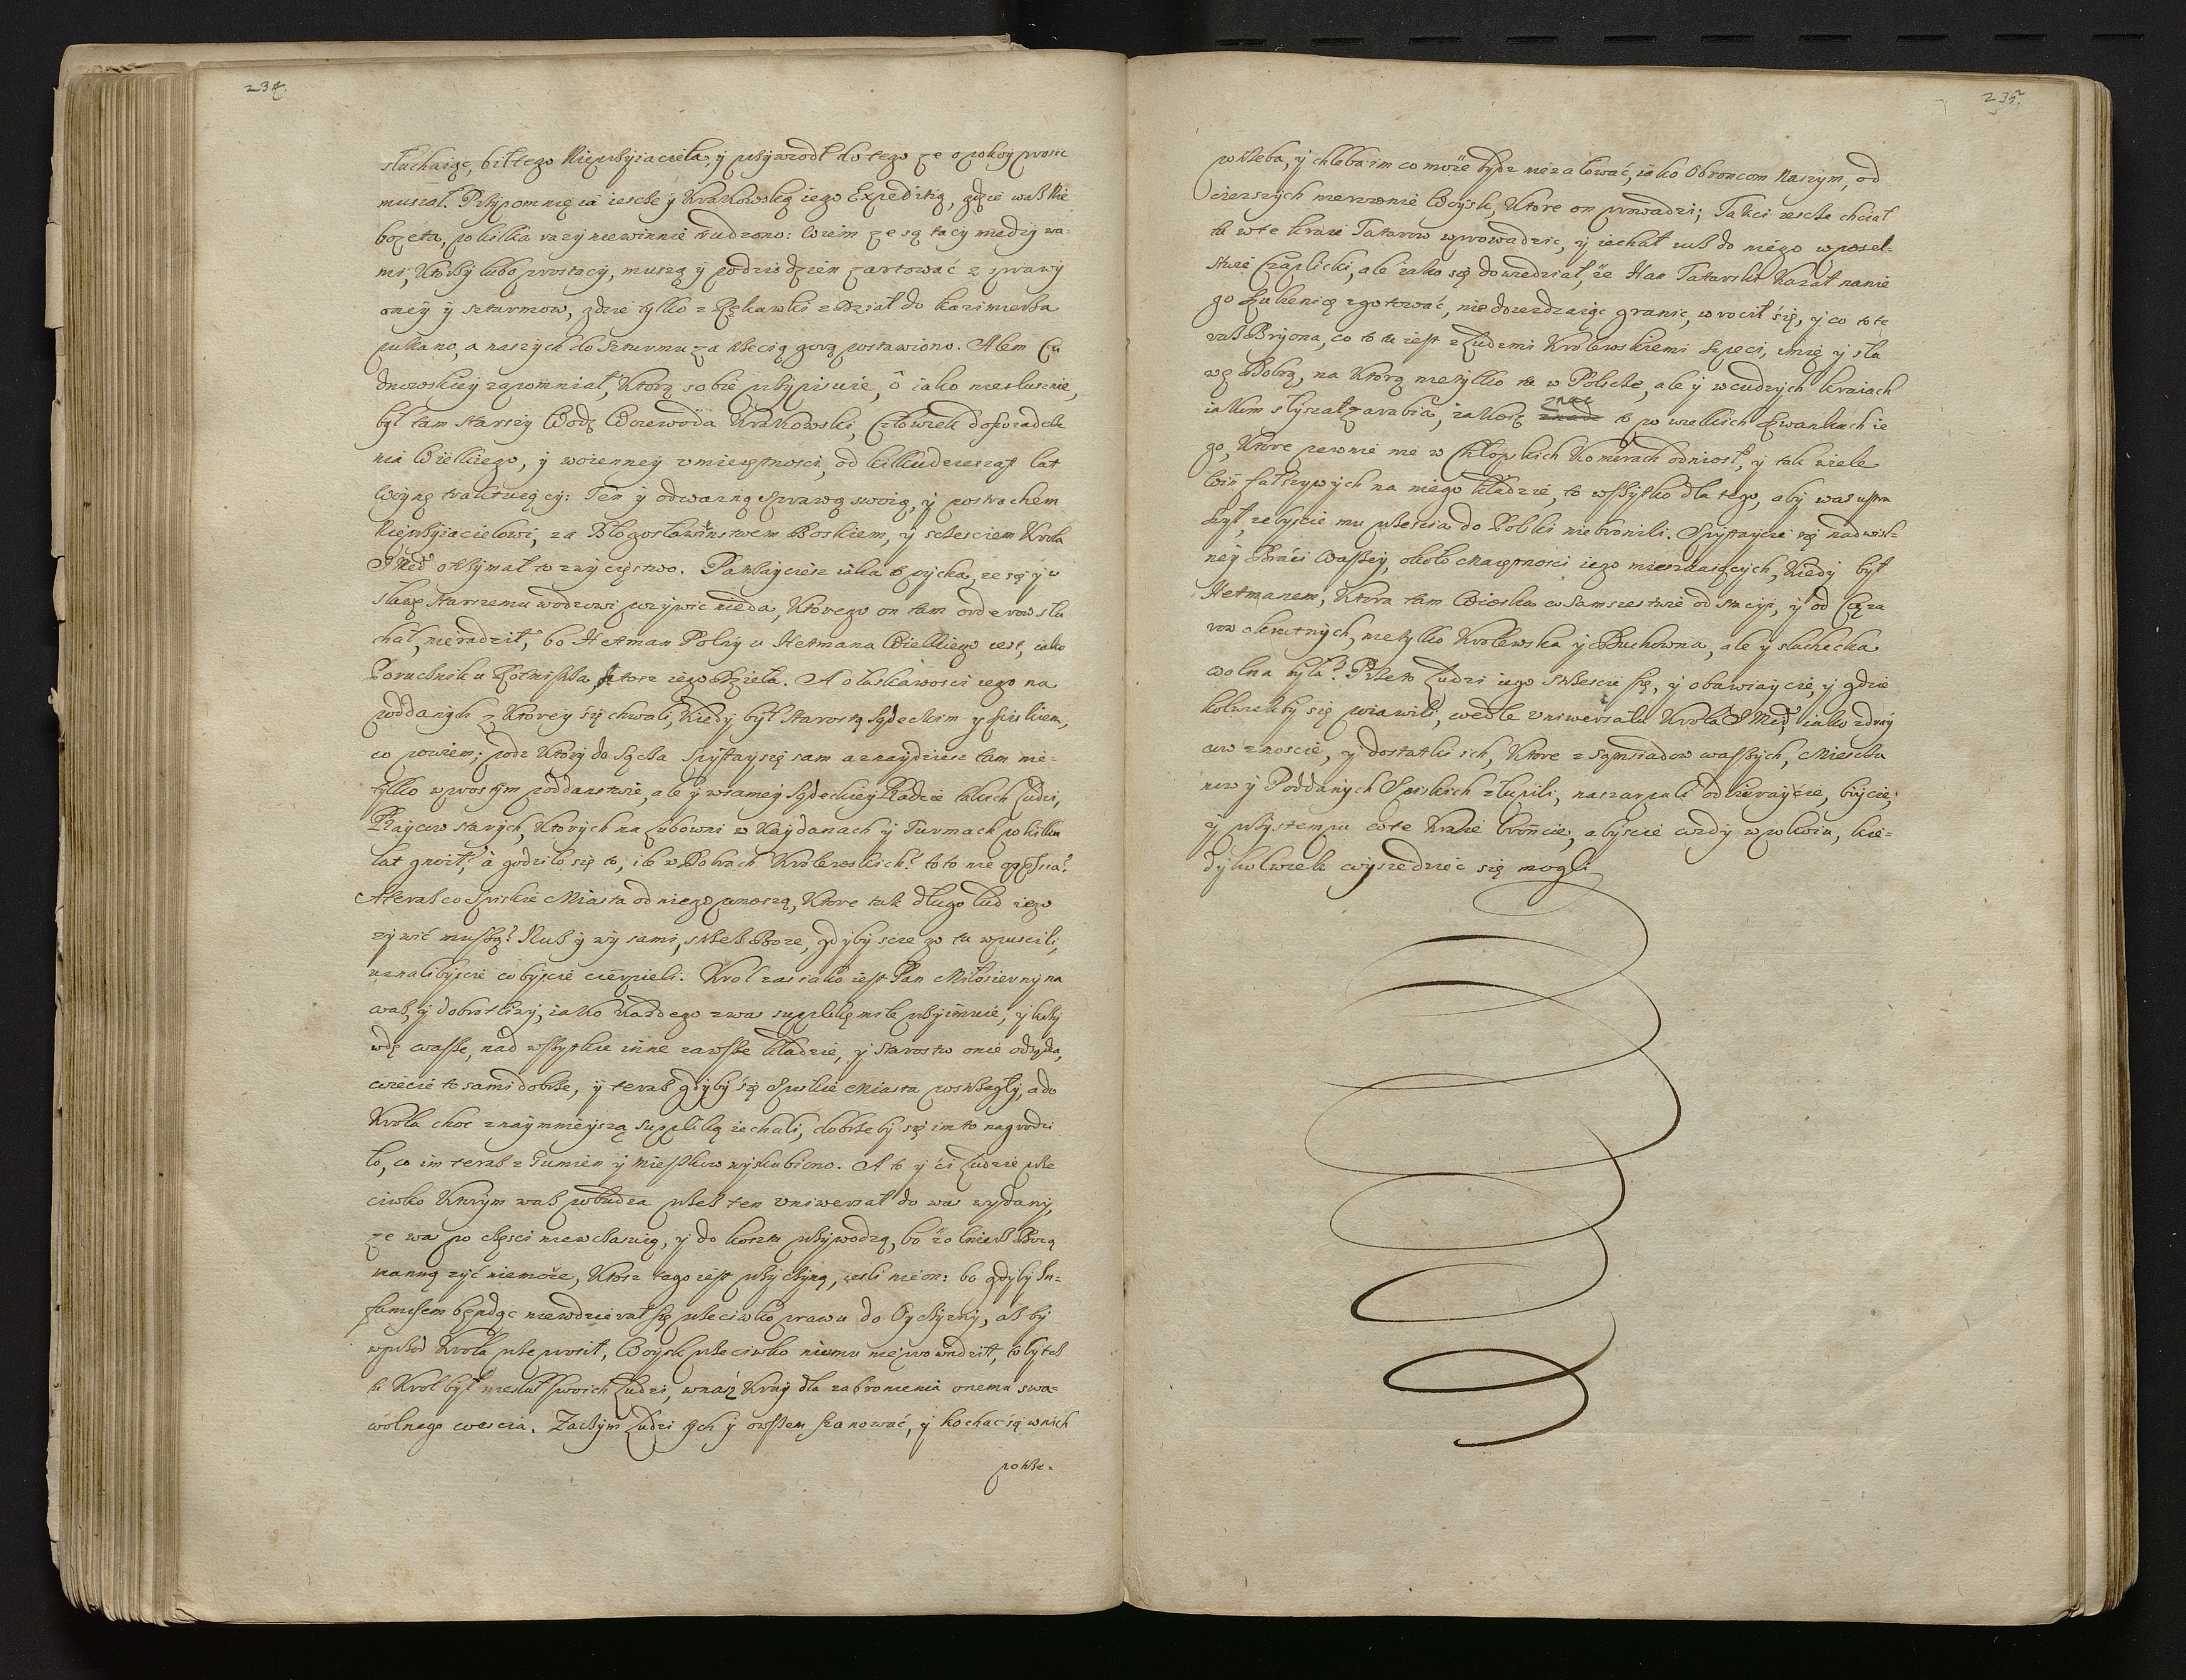 234.
słuchaiąc, bił tego Nieprzyiaciela, y przywiodł do tego ze o pokoy prosic
musiał. Przypomnię ia ieszcze y Krakowską iego Expeditią, gdzie was Nie
bozęta, po kilka razy niewinnie trudzono: Wiem ze są tacy miedzy wa-
mi, Ktorzy lubo prostacy, muszą y podzis dzien zartować z sprawy
oney y szturmow, gdzie tylko z Rękawki z Dział do kazimierza
pukano, a naszych do Szturmu za trzecią gorą postawiono. Alem Cu
dnowskiey zapomniał, Ktorą sobie przypisuie, ô iako niesłusznie,
był tam starszy Wodz Woiewoda Krakowski, Człowiek doswiadcze
nia Wielkiego, y woienney umieiętnosci, od kilkudziesiąt lat
Woynę traktuiący: Ten y odwazną sprawą swoią, y postrachem
Nieprzyiacielowi, za Błogosławinstwem Boskiem, y szczesciem Krola
JMci otrzymał to zwycięstwo. Patrzayciesz iaka to pycka, ze się y w
sławę starszemu wodzowi pozywic nieda, Ktorego on tam orderow słu
chał, nieradził, bo Hetman Polny u Hetmana Wielkiego iest, iako
Porucznik u Rotmistrza, A tosz iego Dzieła. A o łaskawosci iego na
poddanych z Ktorey się chwali, Kiedy był Starostą Sądeckim y Spiskiem,
co powiem; podz Ktory do Sącza spytay się sam a znaydziesz tam nie-
tylko w prostym poddanstwie, ale y w samey Sądeckiey Radzie takich Ludzi,
Raycow starych, Ktorych na Lubowni w Kaydanach y Turmach po kilku
lat gnoił, à godziło się to, ile w Dobrach Krolewskich? to to nie oppressia?
A teraz co Spiskie Miasta od niego ponoszą, Ktore tak długo lud iego
zywić muszą? Nuż y wy sami, strzez Boze, gdybyscie go tu wpuscili,
uznalibyscie co byscie cierpieli. Krol zas iako iest Pan Miłosierny na
was, y dobrotliwy, iako Kazdego z was supplikę mile przyimuie, y krzy
wdę wasze, nad wszytkie inne zawsze kładzie, y Starostw onie odsądza,
wiecie to sami dobrze, y teraz gdyby się Spiskie Miasta postrzegły, a do
Krola choc z naymnieyszą supplilką iechali, dobrze by się im to nagrodzi
ło, co im teraz z Gumien y mieszkow wyskubiono. A to y ći Ludzie prze
ciwko Ktorym was pobudza przez ten Uniwersał do was wydany,
ze was po częsci niewczasuią, y do kosztu przywodzą, bo żołnierz Bozą
manną zyć niemoże, Ktosz tego iest przyczyną, iesli nie on: bo gdyby In-
famisem będąc niewdzierał się przeciwko prawu do Oyczyzny, ałz by
wprzod Krola przeprosił, Woysk przeciwko niemu nieprowadził, to by tez
tu Krol był niesłał swoich Ludzi, w nasz Kray dla zabronienia onemu swa-
wolnego weścia. Zaczym Ludzi tych y owszem szanować, y kochac się w nich
potrze-
235.
potrzeba, y chleba im co może bydz nie załować, iako Obroncom Naszym, od
cięzszych nierownie Woysk, Ktore on prowadzi; Takci ieszcze chciał
tu w te kraie Tatarow wprowadzic, y iechał iuż do niego w posel-
stwie Czaplicki, ale iako się dowiedział, że Han Tatarski kazał nanie
go Sukienię zgotować, niedoieżdzaiąc granic, wrocił się, y co to te
raz Bryona, co to tu iest z Ludzmi Krolewskiemi szpeci, imię y sła
wę Dobrą, na Ktorą nietylko tu w Polszcze, ale y w cudzych kraiach
iakem słyszał zarabia, iakosz znac to po wielkich Szwankach ie
go, Ktore pewnie nie w Chłopskich Komorach odniosł, y tak wiele
win fałszywych na niego kładzie, to wszytko dla tego, aby was uspra
szył, zebyscie mu przescia do Polski niebronili. Spytaycie się nad wisl-
ney Braci Waszey, około Maiętnosci iego mieszkaiących, Kiedy był
Hetmanem, Ktora tam Wioska w Samsiestwie od stacyi, y od Cięza
row okrutnych, nietylko Krolewska y Duchowna, ale y szlachecka
wolna była? Przeto Ludzi iego Strzescie się, y obawiaycie, y gdzie
kolwiekby się poiawili, wedle Uniwersału Krola JMci iako zdray
cow znoscie, y dostatki ich, Ktore z Sąmsiadow waszych, Mieszcza
now y Poddanych Spiskich złupili, naszarpali odbieraycie, biycie,
y przystempu w te Kraie brońcie, abyscie wzdy w pokoiu, kie-
dyzkolwiek wysiedziec się mogli